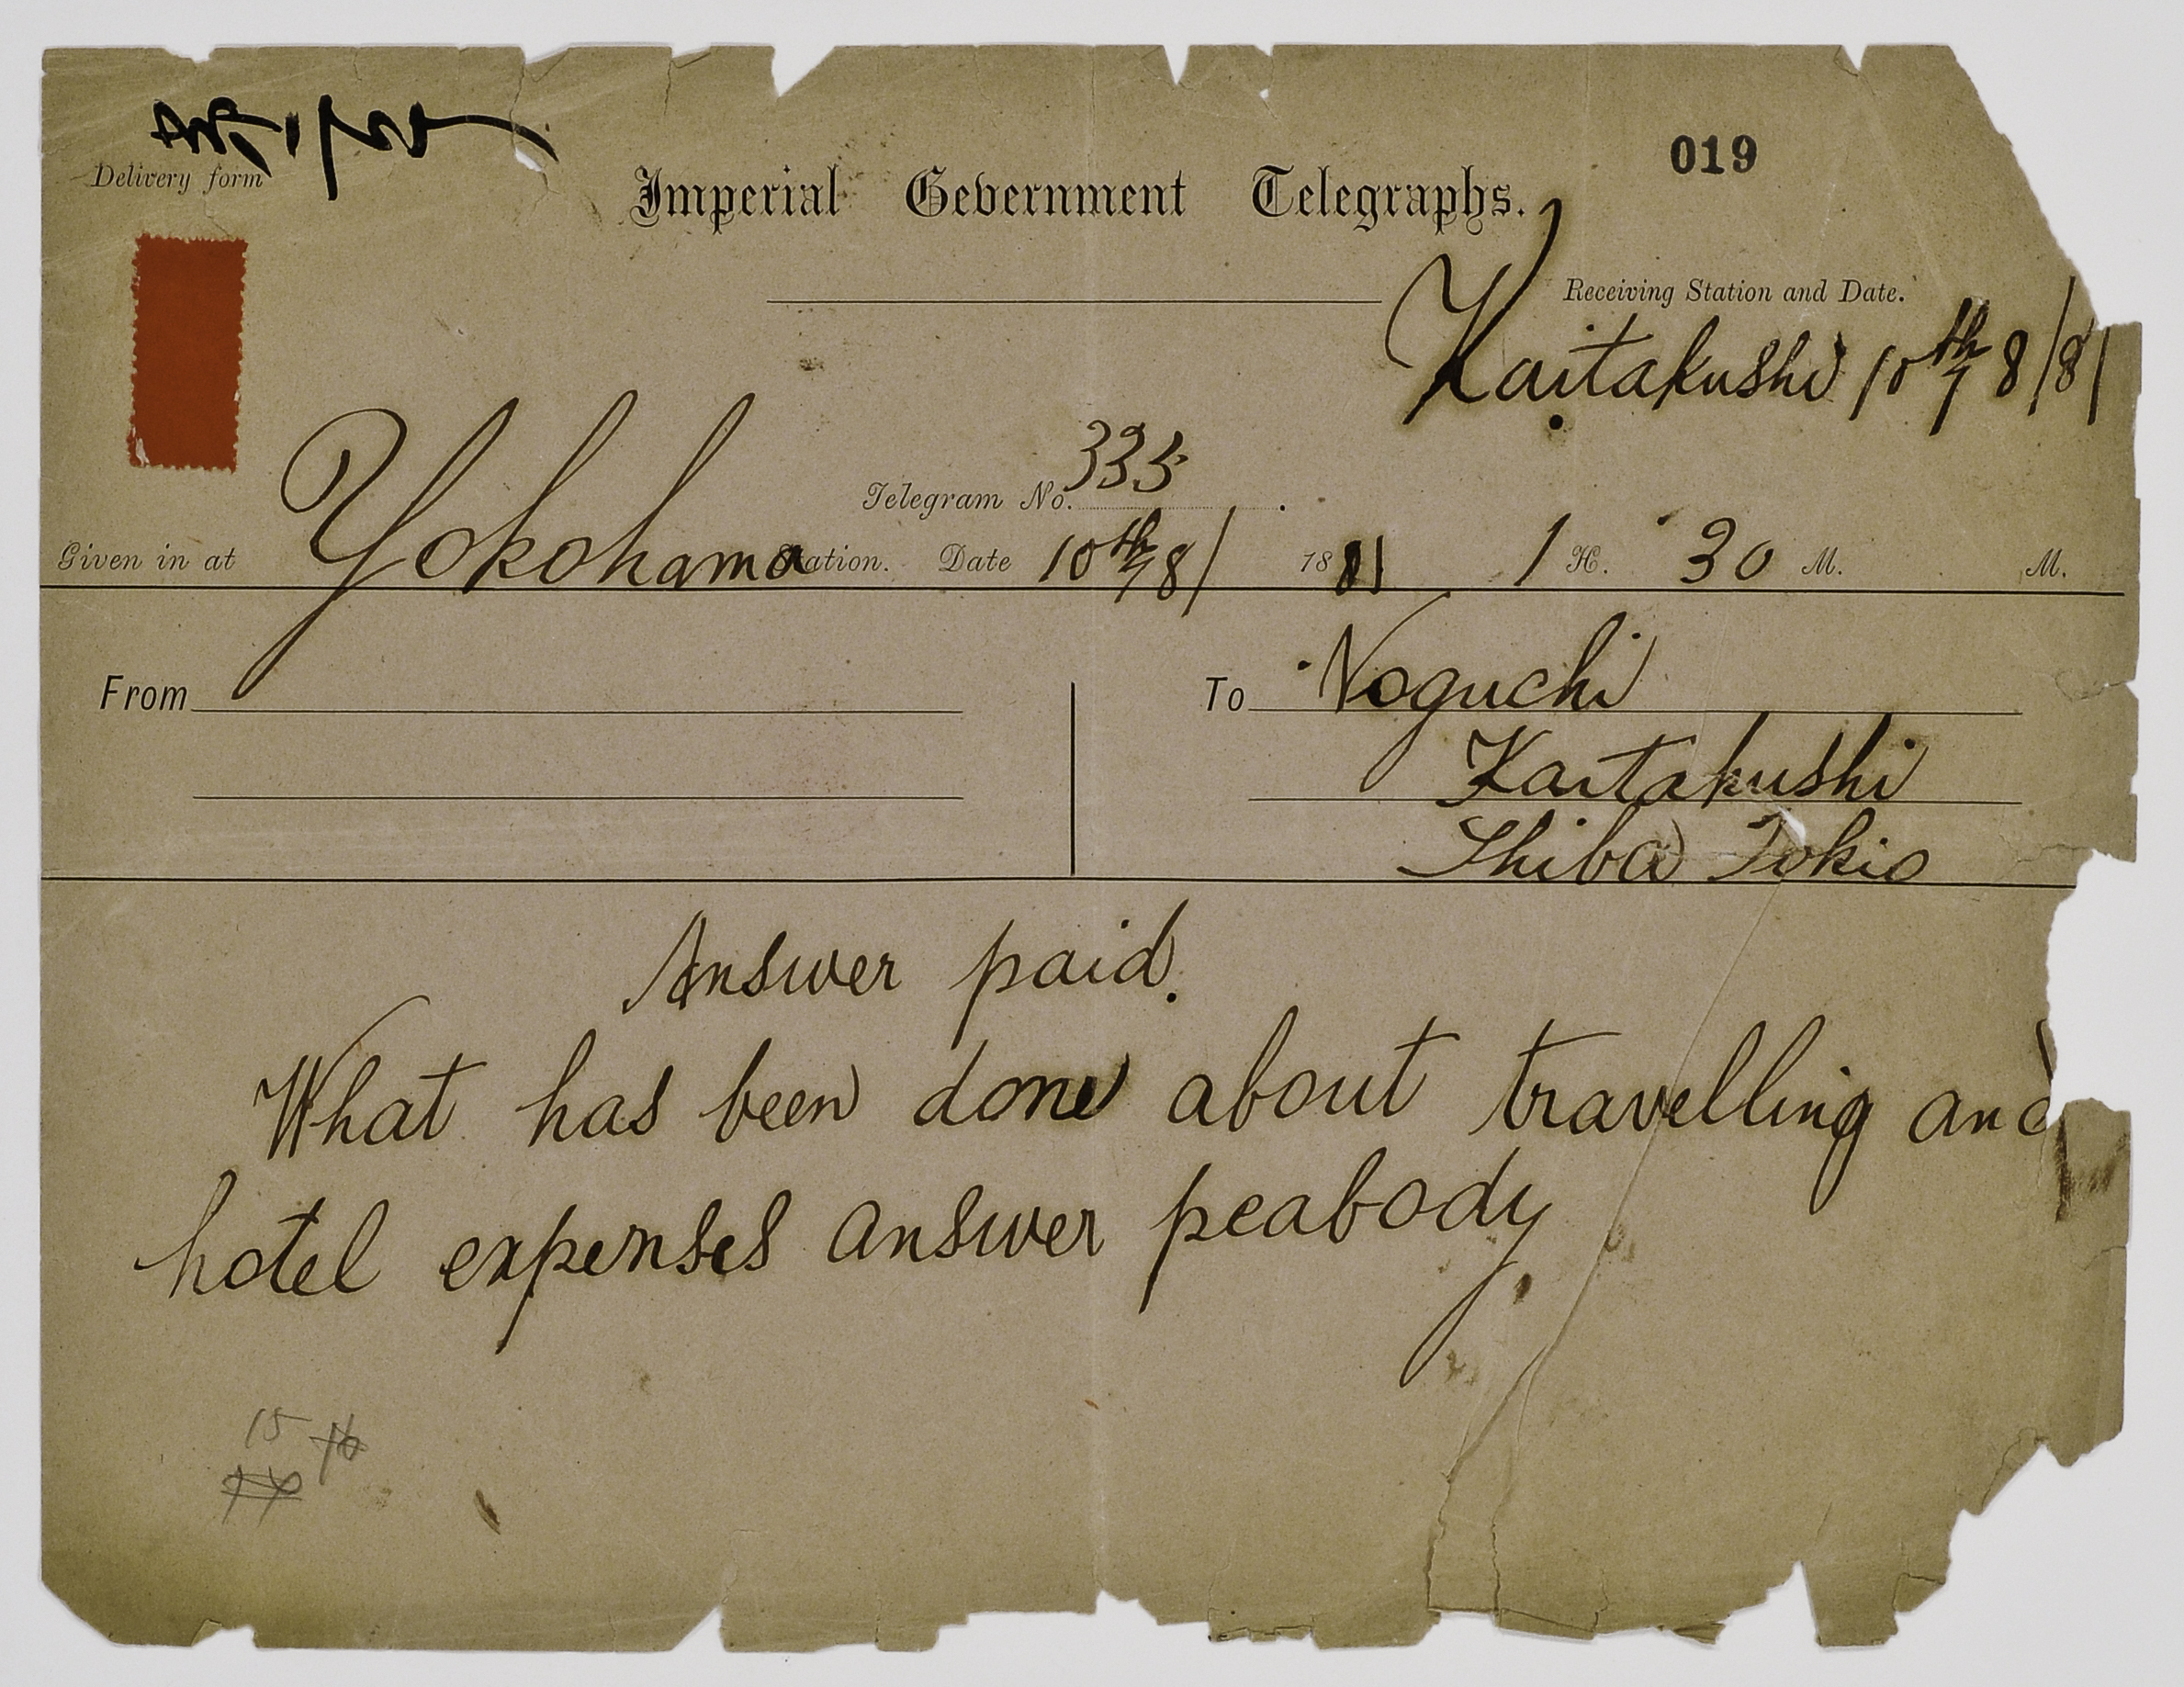 Delivery form
019
Imperial Gevernment Telegraphs.
Receiving Station and Date.
Kaitakushi 10th/7 8/81
Telegram No. 335
Given in at Yokohama Station. Date 10th/7 8/ 1881 1 H. 30 M. M.
From To Noguchi
Kaitakushi
Shiba Tokio
Answer paid.
What has been done about travelling and
hotel expenses answer peabody
15